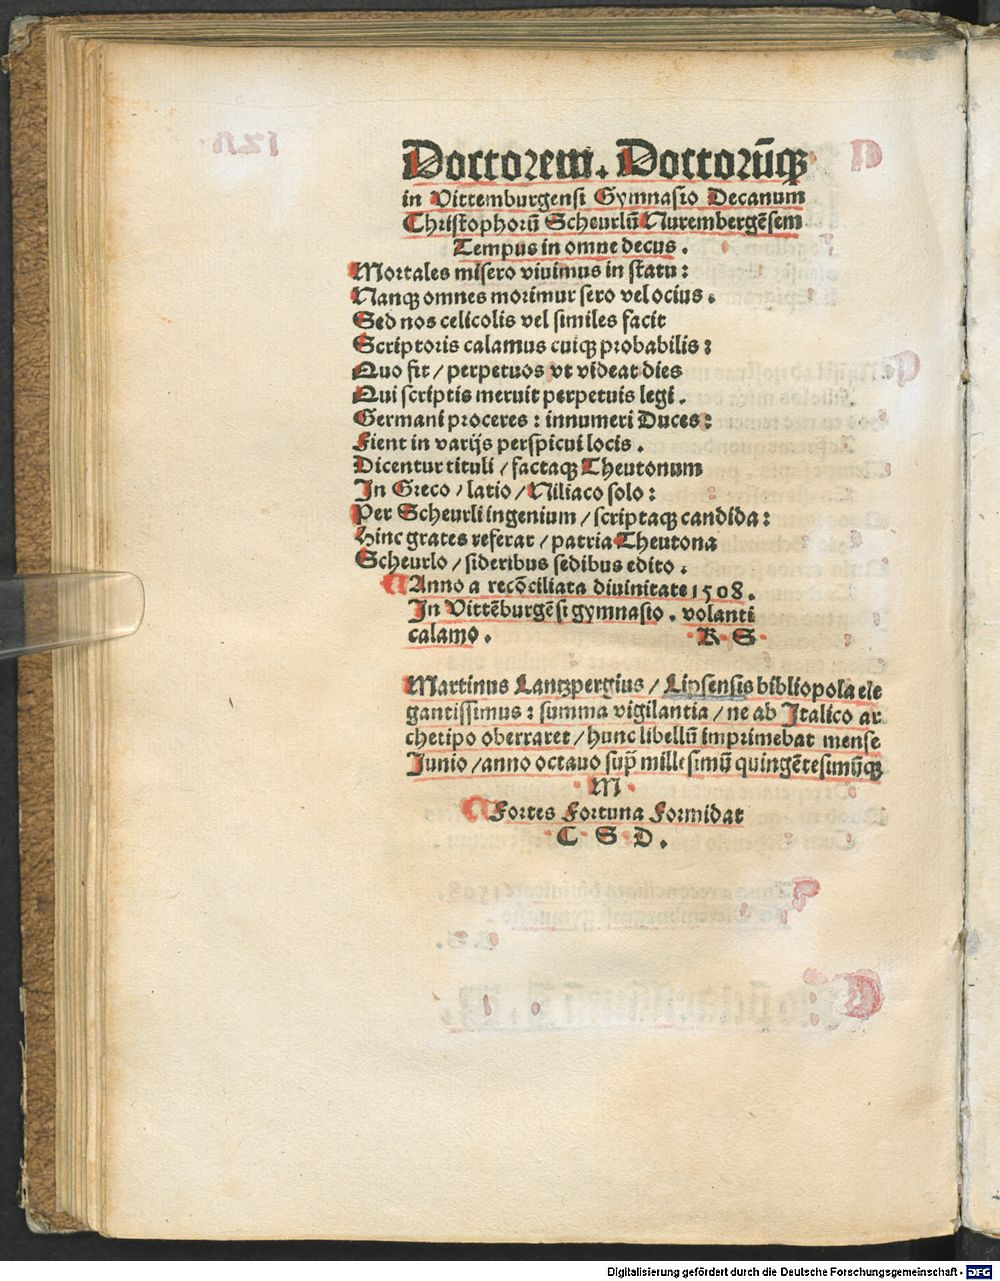 Doctorem. Doctorūqꝫ
in Vittemburgensi Gymnasio Decanum
Christophorū Scheurlū Nurembergēsem
Tempus in omne decus.
Mortales misero viuimus in statu:
Nanqꝫ omnes morimur sero vel ocius.
Sed nos celicolis vel similes facit
Scriptoris calamus cuiqꝫ probabilis:
Quo fit / perpetuos vt videat dies
Qui scriptis meruit perpetuis legi.
Germani proceres: innumeri Duces:
Fient in varijs perspicui locis.
Dicentur tituli / factaqꝫ Theutonum
In Greco / latio / Niliaco solo:
Per Scheurli ingenium / scriptaqꝫ candida:
Hinc grates referat / patria Theutona
Scheurlo / sideribus sedibus edito.
¶ Anno a recōciliata diuinitate 1508.
In Vittēburgēsi gymnasio. volanti
calamo. ·K·S·
Martinus Lantzpergius / Lipsensis bibliopola ele
gantissimus: summa vigilantia / ne ab Italico ar
chetipo oberraret / hunc libellū imprimebat mense
Junio / anno octauo sup̄ millesimū quingētesimūqꝫ
·M·
¶ Fortes Fortuna Formidat
·C·S·D.
Digitalisierung gefördert durch die Deutsche Forschungsgemeinschaft - DFG